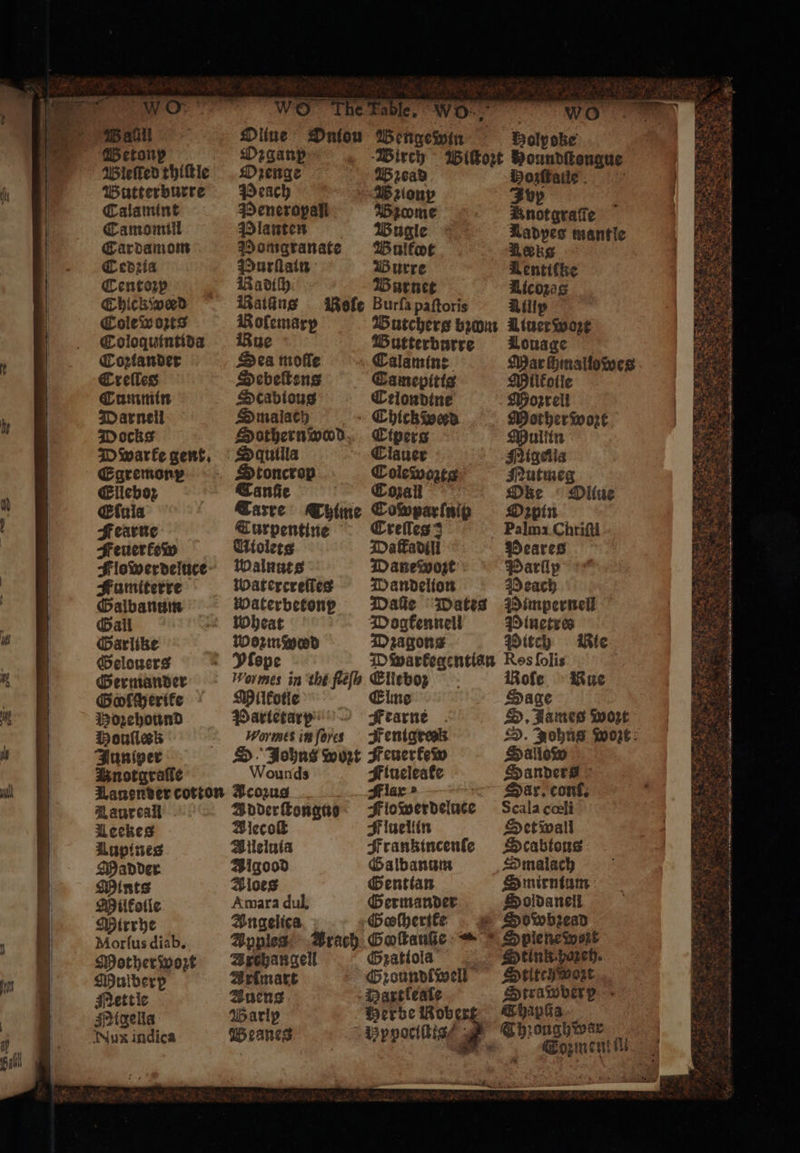 WO WO The Table. WO WO
Basill
Betony
Blessed thistle
Butterburre
Calamint
Camomill
Cardamom
Cedria
Centory
Chickweed
Coleworts
Coloquintida
Coriander
Cresses
Cummin
Darnell
Docks
Dwarfe gent.
Egremony
Ellebor
Esula
Fearne
Feuerfew
Flowerdeluce
Fumiterre
Galbanum
Gall
Garlike
Gelouers
Germander
Horehound
Housleek
Juniper
Knotgrasse
Lauender cotton
Laureall
Leekes
Lupines
Madder
Mints
Milfoile
Mirrhe
Morsus diab.
Motherwort
Mulbery
Nettle
Nigella
Nux indica
Oliue Onion
Organy
Orenge
Peach
Peneropall
Planten
Pomgranate
Purslain
Radish
Raisins Rose
Rosemary
Rue
Sea mosse
Sebestens
Scabious
Smalach
Sothernwood
Squilla
Stoncrop
Tansie
Tarre Thime
Turpentine
Violets
Walnuts
Watercresses
Waterbetony
Wheat
Wormwood
Ysope
Wormes in the flesh
Milfoile
Parietary
Wormes in sores
S. Johns wort
Wounds
Acorus
Adderstongue
Alecost
Alleluia
Algood
Aloes
Amara dul.
Angelica
Apples Arach
Archangell
Arsmart
Auens
Barly
Beanes
Bengewin
Birch Bistort
Bread
Briony
Broome
Bugle
Bulfoot
Burre
Burnet
Bursa pastoris
Butchers broom
Butterburre
Calamint
Camepitis
Celondine
Chickweed
Cipers
Clauer
Coleworts
Corall
Cowparsnip
Cresses
Daffadill
Danewort
Dandelion
Dasie Dates
Dogfennell
Dragons
Dwarfegentian
Ellebor
Elme
Fearne
Fenigreek
Feuerfew
Fiueleafe
Flax
Flowerdeluce
Fluellin
Frankincense
Galbanum
Gentian
Germander
Gratiola
Groundswell
Hartsease
Herbe Robert
Hypocistis
Holyoke
Houndstongue
Horstaile
Iuy
Knotgrasse
Ladyes mantle
Leeks
Lentiske
Licoras
Lilly
Liuerwort
Louage
Marshmallowes
Milfoile
Morrell
Motherwort
Mullin
Nigella
Nutmeg
Oke Oliue
Orpin
Palma Christi
Peares
Parsly
Peach
Pimpernell
Pinetree
Pitch Rie
Ros solis
Rose Rue
Sage
S. James wort
S. Johns wort
Sallow
Sanders
Sar. cons.
Scala cœli
Setwall
Scabious
Smalach
Smirnium
Soldanell
Sowbread
Splenewort
Stink. horeh.
Stitchwort
Strawbery
Thapsia
Throughwax
Tormentill